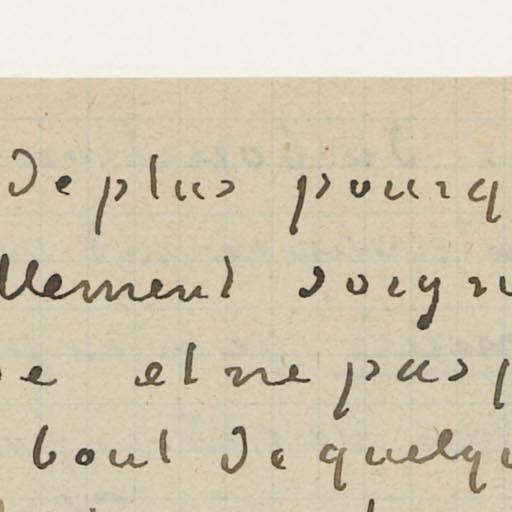 De plus pourq
llement soign
se et ne pas p
bout de quelqu